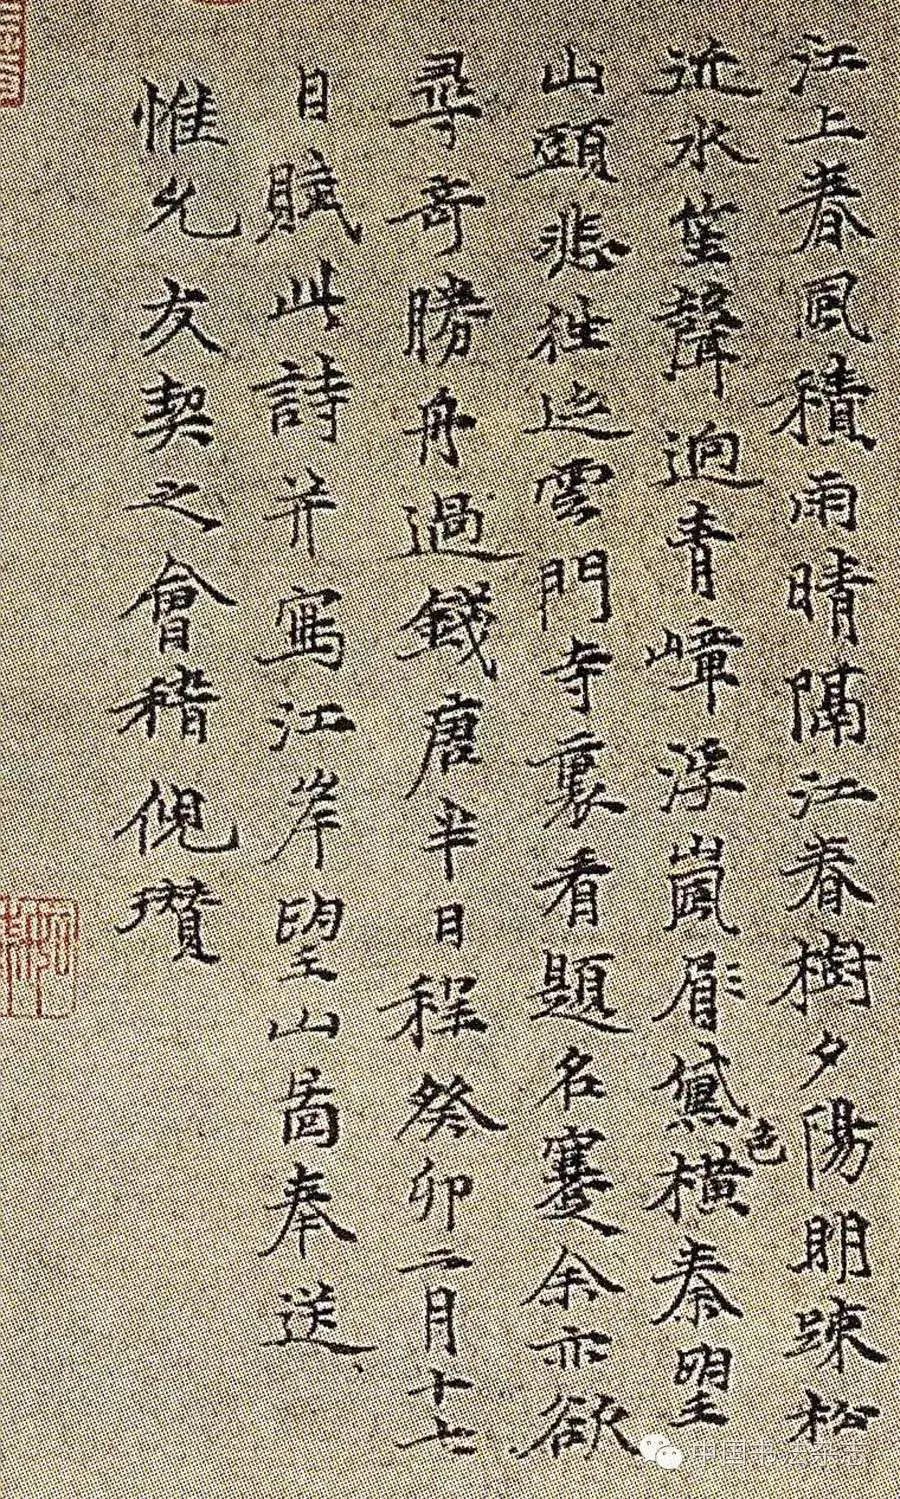 江上春風積雨晴隔江春樹夕陽明踈松
近水笙聲迥青嶂浮嵐眉黛色橫秦望
山頭悲往迹雲門寺裏看題名蹇余亦欲
尋奇勝舟過錢唐半日程癸卯二月十七
日賦此詩并寫江岸望山圖奉送
惟允友契之會稽倪瓚
中国书法杂志